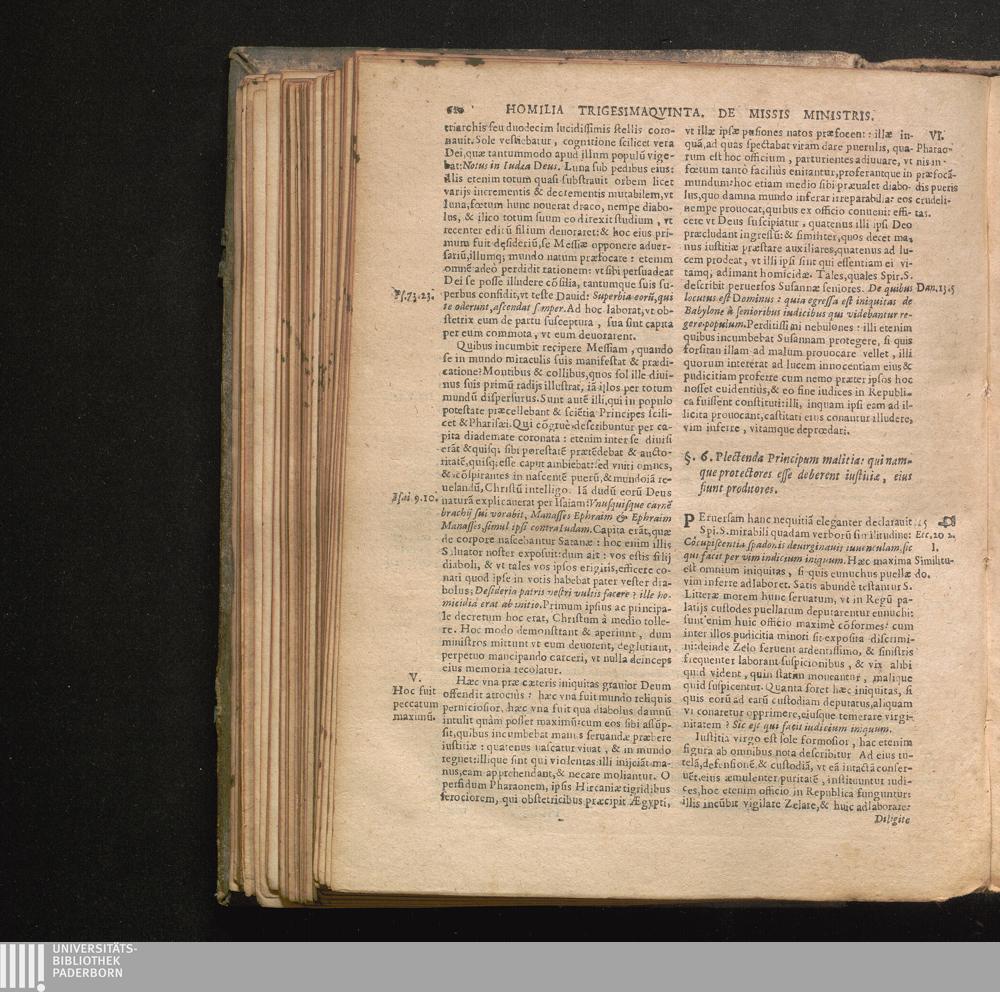 HOMILIA TRIGESIMAQVINTA. DE MISSIS MINISTRIS.
triarchis seu duodecim lucidissimis stellis coro-
nauit. Sole vestiebatur, cognitione scilicet vera
Dei, quæ tantummodo apud illum populũ vige-
bat: Notus in Iudæa Deus. Luna sub pedibus eius:
illis etenim totum quasi substrauit orbem licet
varijs incrementis & decrementis mutabilem, vt
luna, fœtum hunc nouerat draco, nempe diabo-
lus, & ilico totum suum eo direxit studium, vt
recenter editũ filium deuoraret: & hoc eius pri-
mum fuit desideriũ, se Messiæ opponere aduer-
sariũ, illumq; mundo natum præfocare: etenim
omnẽ adeò perdidit rationem: vt sibi persuadeat
Dei se posse illudere cõsilia, tantumque suis su-
Ps. 73. 23. perbus confidit, vt teste Dauid: Superbia eorũ, qui
te oderunt, ascendat semper. Ad hoc laborat, vt ob-
stetrix eum de partu susceptura, sua sint capita
per eum commota, vt eum deuorarent.
Quibus incumbit recipere Messiam, quando
se in mundo miraculis suis manifestat & prædi-
catione? Montibus & collibus, quos sol ille diui-
nus suis primũ radijs illustrat, iã illos per totum
mundũ dispersurus. Sunt autẽ illi, qui in populo
potestate præcellebant & sciẽtia Principes scili-
cet & Pharisæi. Qui cõgruè describuntur per ca-
pita diademate coronata: etenim inter se diuisi
erãt & quisq; sibi potestatẽ prætẽdebat & aucto-
ritatẽ, quisq; esse caput ambiebat: sed vniti omnes,
& cõspirantes in nascentẽ puerũ, & mundo iã re-
uelandũ, Christũ intelligo. Iã dudũ eorũ Deus
Isai. 9. 10. naturã explicauerat per Isaiam: Vnusquisque carnẽ
brachij sui vorabit, Manasses Ephraim & Ephraim
Manasses, simul ipsi contra Iudam. Capita erãt, quæ
de corpore nascebantur Satanæ: hoc enim illis
Saluator noster exposuit: dum ait: vos estis filij
diaboli, & vt tales vos ipsos erigitis, efficere co-
nati quod ipse in votis habebat pater vester dia-
bolus; Desideria patris vestri vultis facere? ille ho-
micidia erat ab initio. Primum ipsius ac principa-
le decretum hoc erat, Christum à medio tolle-
re. Hoc modo demonstrant & aperiunt, dum
ministros mittunt vt eum deuorent, deglutiant,
perpetuo mancipando carceri, vt nulla deinceps
eius memoria recolatur.
V. Hæc vna præ cæteris iniquitas grauior Deum
Hoc fuit offendit atrocius: hæc vna fuit mundo reliquis
peccatum perniciosior, hæc vna fuit qua diabolus damnũ
maximũ. intulit quàm posset maximũ: cum eos sibi assũp-
sit, quibus incumbebat manus seruandæ præbere
iustitiæ: quatenus nascatur viuat, & in mundo
regnet: illique sint qui violentas illi inijciãt ma-
nus, eam apprehendant, & necare moliantur. O
perfidum Pharaonem, ipsis Hircaniæ tigridibus
ferociorem, qui obstetricibus præcipit Ægypti,
vt illæ ipsæ pusiones natos præfocent: illæ in- VI.
quã, ad quas spectabat vitam dare puerulis, qua- Pharao-
rum est hoc officium, parturientes adiuuare, vt nis in
fœtum tantò faciliùs enitantur, proferantque in præfocã-
mundum: hoc etiam medio sibi præualet diabo- dis pueris
lus, quo damna mundo inferat irreparabilia: eos crudeli-
nempe prouocat, quibus ex officio conuenit effi- tas.
cere vt Deus suscipiatur, quatenus illi ipsi Deo
præcludant ingressũ: & similiter, quos decet ma-
nus iustitiæ præstare auxiliares, quatenus ad lu-
cem prodeat, vt illi ipsi sint qui essentiam ei vi-
tamq; adimant homicidæ. Tales, quales Spir. S.
describit peruersos Susannæ seniores. De quibus Dan. 13. 5
locutus est Dominus: quia egressa est iniquitas de
Babylone à senioribus iudicibus qui videbantur re-
gere populum. Perditissimi nebulones: illi etenim
quibus incumbebat Susannam protegere, si quis
forsitan illam ad malum prouocare vellet, illi
quorum intererat ad lucem innocentiam eius &
pudicitiam proferre cum nemo præter ipsos hoc
nosset euidentiùs, & eo fine iudices in Republi-
ca fuissent constituti: illi, inquam ipsi eam ad il-
licita prouocant, castitati eius conantur illudere,
vim inferre, vitamque deprœdari.
§. 6. Plectenda Principum malitia: qui nam-
que protectores esse deberent iustitiæ, eius
fiunt proditores.
PEruersam hanc nequitiã eleganter declarauit 15
Spi. S. mirabili quadam verborũ similitudine: Ecc. 20 2.
Cõcupiscentia spadonis deuirginauit iuuenculam, sic I.
qui facit per vim iudicium iniquum. Hæc maxima Similitu-
est omnium iniquitas, si quis eunuchus puellæ do.
vim inferre adlaboret. Satis abundè testantur S.
Litteræ morem hunc seruatum, vt in Regũ pa-
latijs custodes puellarum deputarentur eunuchi:
sunt enim huic officio maximè cõformes: cum
inter illos pudicitia minori sit exposita discrimi-
ni: deinde Zelo feruent ardentissimo, & sinistris
frequenter laborant suspicionibus, & vix alibi
quid vident, quin statim moueantur, malique
quid suspicentur. Quanta foret hæc iniquitas, si
quis eorũ ad carũ custodiam deputatus, aliquam
vi conaretur opprimere, eiusque temerare virgi-
nitatem? Sic est qui facit iudicium iniquum.
Iustitia virgo est sole formosior, hac etenim
figura ab omnibus nota describitur Ad eius tu-
telã, defensionẽ & custodiã, vt eã intactã conser-
uẽt, eius æmulenter puritatẽ, instituuntur iudi-
ces, hoc etenim officio in Republica funguntur:
illis incũbit vigilare Zelare, & huic adlaborare:
Diligite
UNIVERSITÄTS-
BIBLIOTHEK
PADERBORN